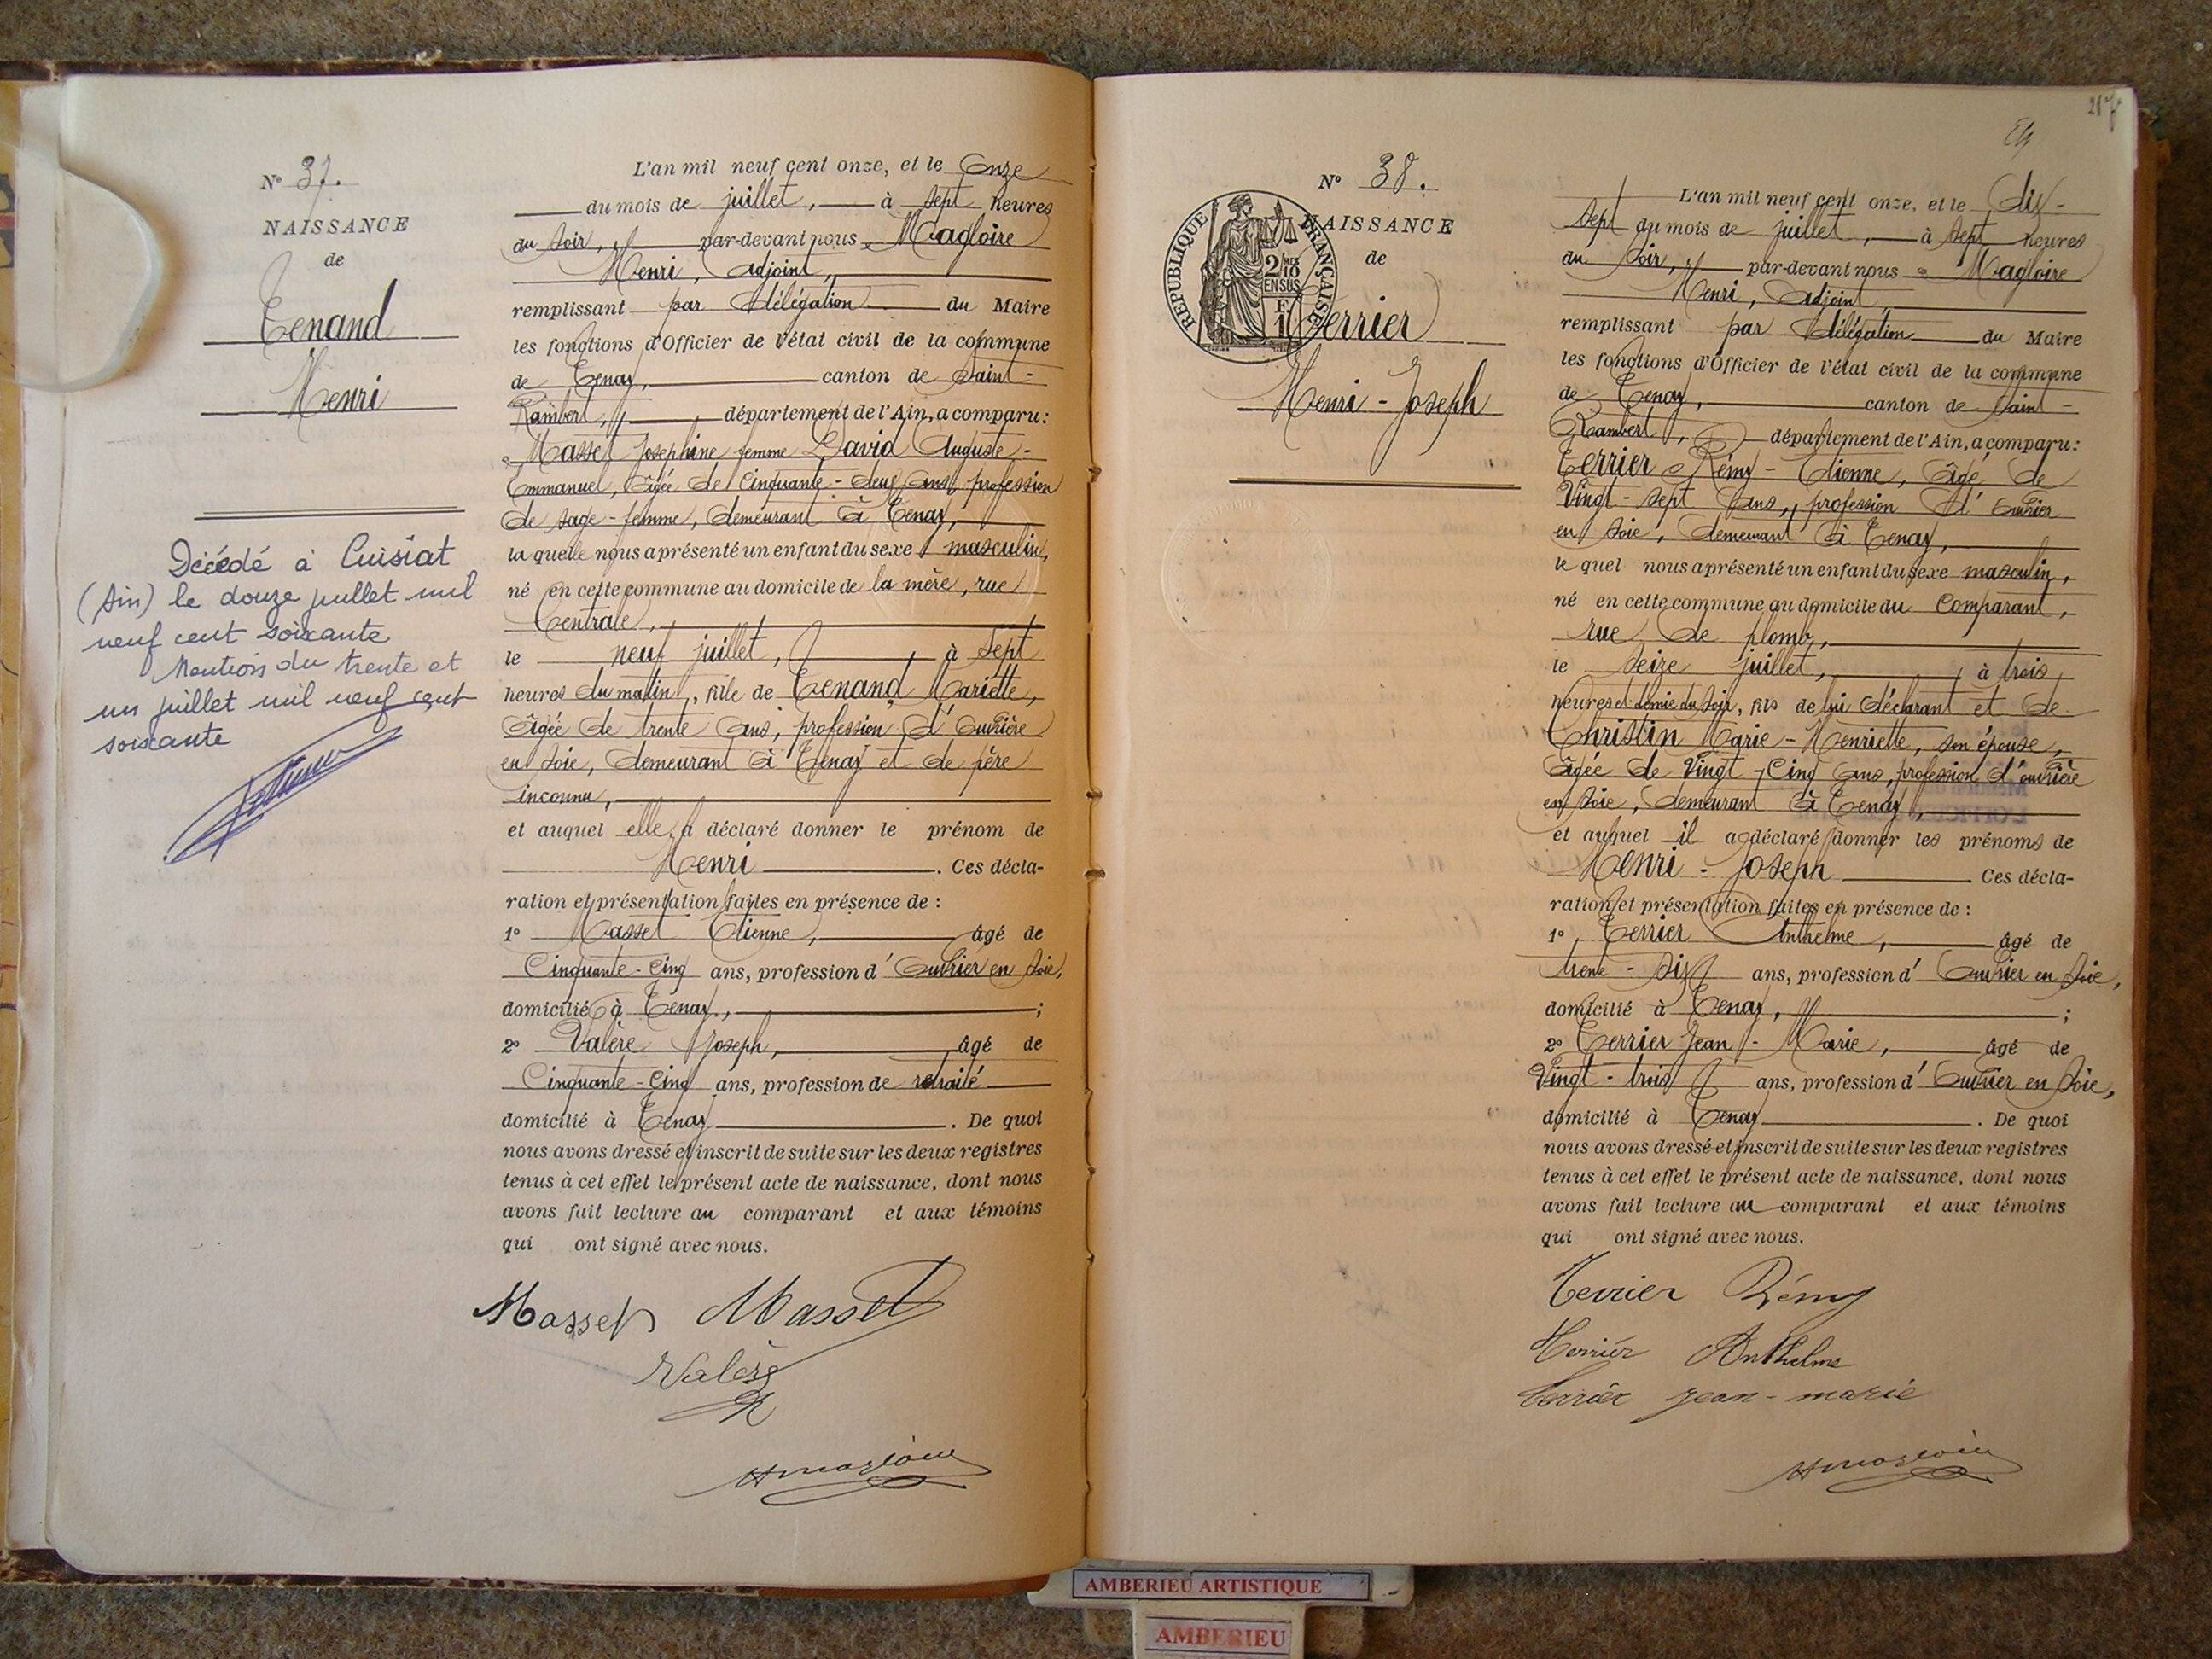 N° 37.
NAISSANCE
de
Tenand
Henri
Décédé à Cuisiat
(Ain) le douze juillet mil
neuf cent soixante
Mention du trente et
un juillet mil neuf cent
soixante
L'an mil neuf cent onze, et le onze
du mois de juillet, à sept heures
du soir, par-devant nous Magloire
Henri, adjoint,
remplissant par délégation du Maire
les fonctions d'Officier de l'état civil de la commune
de Tenay, canton de Saint-
Rambert, département de l'Ain, a comparu:
Masset Josephine femme David Auguste-
Emmanuel, âgée de cinquante-deux ans, profession
de sage-femme, demeurant à Tenay,
la quelle nous a présenté un enfant du sexe masculin,
né en cette commune au domicile de la mère, rue
Centrale,
le neuf juillet, à sept
heures du matin, fils de Tenand Mariette,
âgée de trente ans, profession d'ouvrière
en soie, demeurant à Tenay et de père
inconnu,
et auquel elle a déclaré donner le prénom de
Henri. Ces décla-
ration et présentation faites en présence de:
1° Masset Etienne, âgé de
cinquante-cinq ans, profession d'ouvrier en soie,
domicilié à Tenay,;
2° Valère Joseph, âgé de
cinquante-cinq ans, profession de retraité
domicilié à Tenay. De quoi
nous avons dressé et inscrit de suite sur les deux registres
tenus à cet effet le présent acte de naissance, dont nous
avons fait lecture au comparant et aux témoins
qui ont signé avec nous.
Masset Masset
Valère
HMagloire
217
24
RÉPUBLIQUE FRANÇAISE
2/10
EN SUS
N° 38.
NAISSANCE
de
Terrier
Henri-Joseph
L'an mil neuf cent onze, et le dix-
sept du mois de juillet, à sept heures
du soir, par-devant nous Magloire
Henri, adjoint,
remplissant par délégation du Maire
les fonctions d'Officier de l'état civil de la commune
de Tenay, canton de Saint-
Rambert, département de l'Ain, a comparu:
Terrier Rémy-Etienne, âgé de
vingt-sept ans, profession d'ouvrier
en soie, demeurant à Tenay,
le quel nous a présenté un enfant du sexe masculin,
né en cette commune au domicile du comparant,
rue de plomb,
le seize juillet, à trois
heures et demie du soir, fils de lui déclarant et de
Christin Marie-Henriette, son épouse,
âgée de vingt-cinq ans, profession d'ouvrière
en soie, demeurant à Tenay,
et auquel il a déclaré donner les prénoms de
Henri-Joseph Ces décla-
ration et présentation faites en présence de:
1° Terrier Anthelme, âgé de
trente-six ans, profession d'ouvrier en soie,
domicilié à Tenay,;
2° Terrier Jean-Marie, âgé de
vingt-trois ans, profession d'ouvrier en soie,
domicilié à Tenay. De quoi
nous avons dressé et inscrit de suite sur les deux registres
tenus à cet effet le présent acte de naissance, dont nous
avons fait lecture au comparant et aux témoins
qui ont signé avec nous.
Terrier Rémy
Terriér Anthelme
Terriér jean-marie
HMagloire
AMBERIEU ARTISTIQUE
AMBERIEU